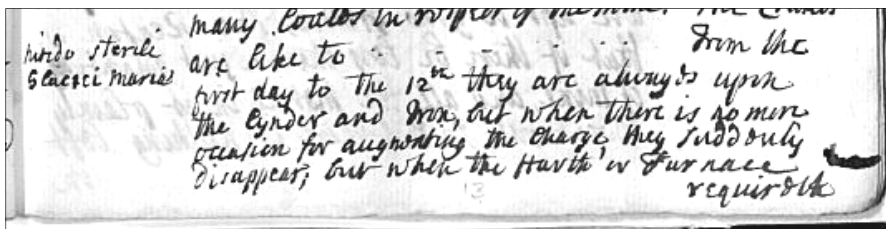 many Coales in respect of the mine. The
nindo sterili
Glacici maris
are like to . . - - . . . From the
first day to the 12th they are always upon
the Cynder and Iron, but when there is no more
occasion for augmenting the Charge they suddenly
disappear; but when the Harth or Furnace
requireth